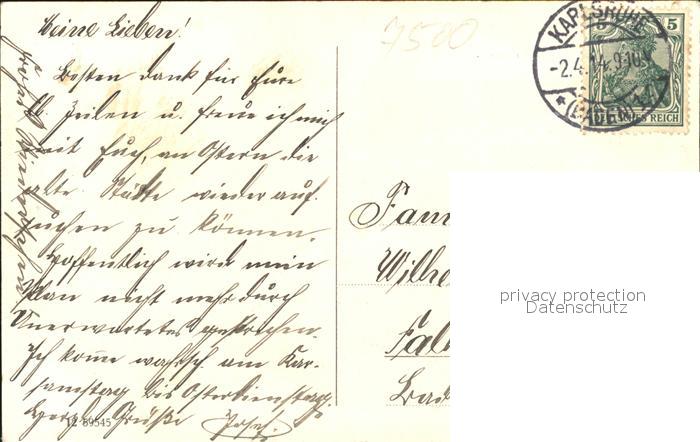 Meine Lieben!
Besten Dank für Eure
lb. Zeilen u. freue ich mich
mit Euch, an Ostern die
alte Stätte wieder auf-
suchen zu können.
Hoffentlich wird mein
Plan nicht mehr durch
Unerwartetes gestrichen.
Ich kome wahrsch. am Kar-
samstag bis Osterdienstag.
Herzl. Grüße Josef.
12-89545
7500
KARLSRUHE
-2.4.14.9-10
(BADEN)
5 5
DEUTSCHES REICH
Fam
Wilhe
Bad
privacy protection
Datenschutz